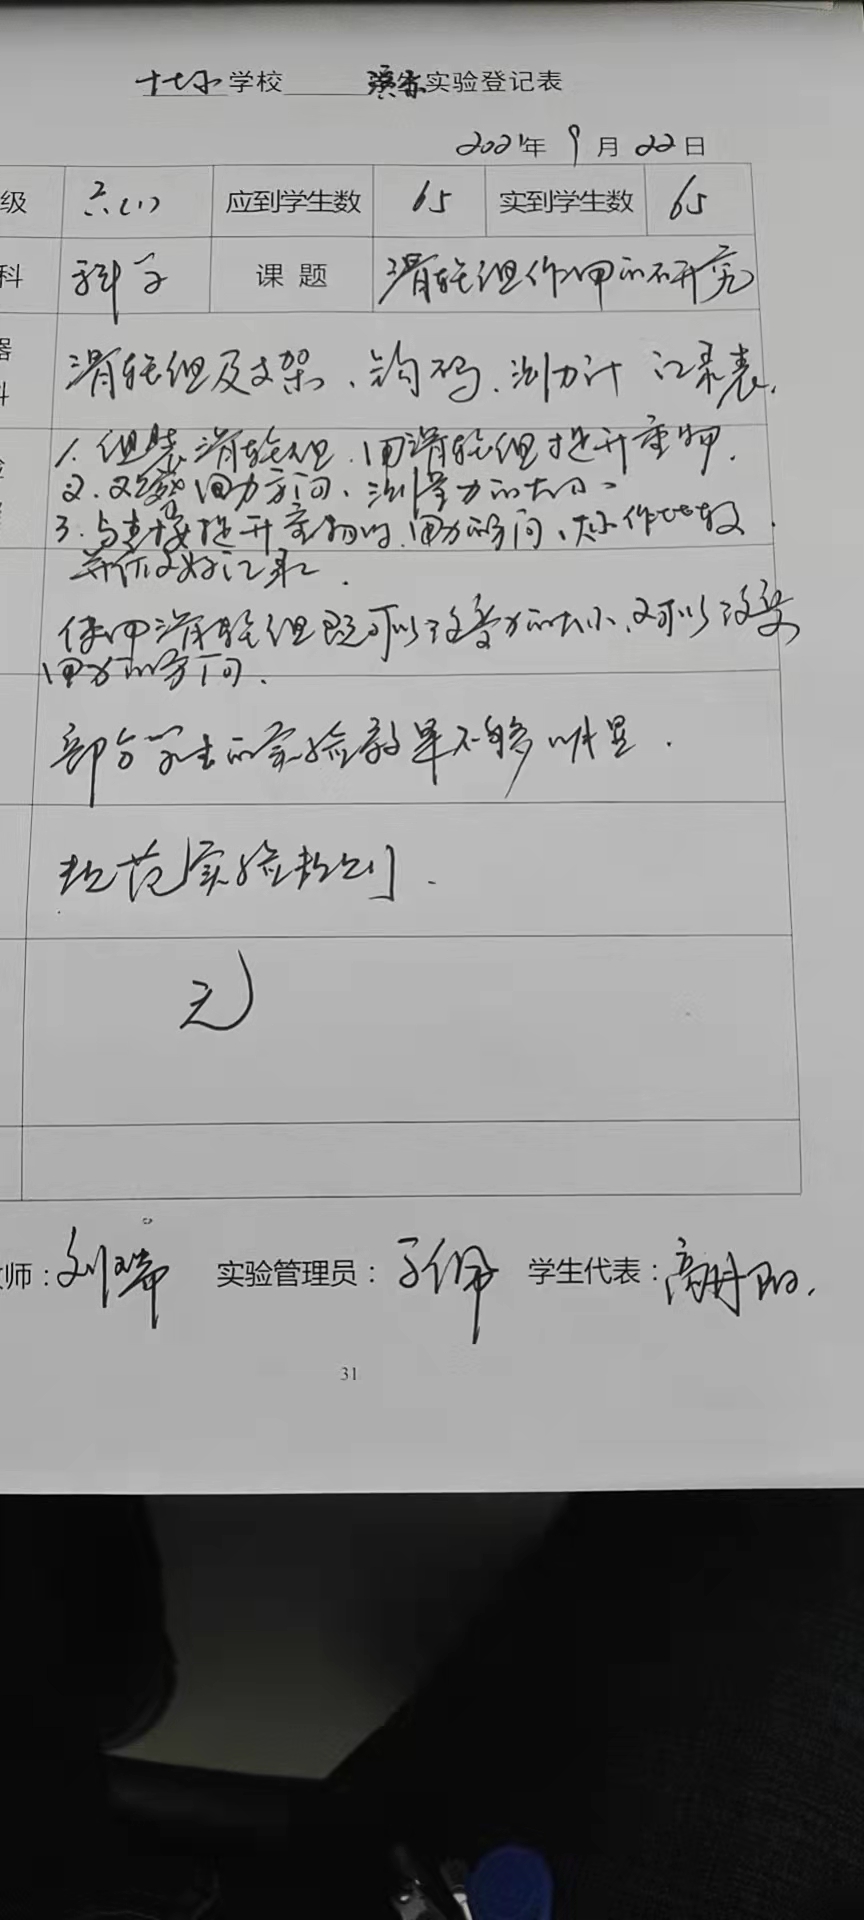 十七小学校 演示实验登记表
2021年 9月 22日
级 六(1) 应到学生数 65 实到学生数 65
科 科学 课题 滑轮组作用的研究
器 滑轮组及支架、钩码、测力计 记录表.
料
1. 组装滑轮组,用滑轮组提升重物.
2. 观察用力方向、测量力的大小。
3. 与直接提升重物时,用力的方向、大小作比较.
并作好记录.
使用滑轮组既可以改变力的大小,又可以改变
用力的方向.
部分学生的实验效果不够明显.
规范实验规则.
无
师:刘瑞 实验管理员: 学生代表:
31